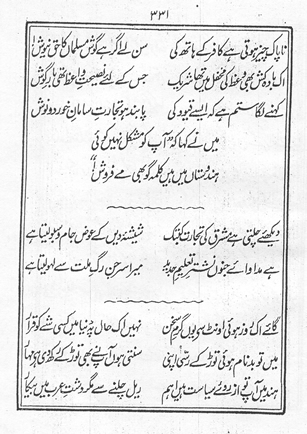 ٣٣١
ناپاک چیز ہوتی ہے کافر کے ہاتھ کی سن لے اگر ہے گوش مسلماں کا حق نیوش
اک بادہ کش بھی وعظ کی محفل میں تھا شریک جس کے لئے نصیحتِ واعظ تھی بارِ گوش
کہنے لگا ستم ہے کہ ایسے قیود کی پابند ہو تجارتِ سامانِ خورد و نوش
میں نے کہا کہ "آپ کو مشکل نہیں کوئی
ہندوستاں میں ہیں کلمہ گو بھی مے فروش"
دیکھئے چلتی ہے مشرق کی تجارت کب تک شیشۂ دیں کے عوض جام و سبو لیتا ہے
ہے مداوائے جنونِ نشترِ تعلیمِ جدید میرا سرجن رگِ ملت سے لہو لیتا ہے
گائے اک روز ہوئی اونٹ سے یوں گرمِ سخن نہیں اک حال پہ دنیا میں کسی شے کو قرار
میں تو بدنام ہوئی توڑ کے رسی اپنی سنتی ہوں آپ نے بھی توڑ کے رکھ دی ہے مہار
ہند میں آپ تو از روئے سیاست ہیں اہم ریل چلنے سے مگر دشتِ عرب میں بیکار